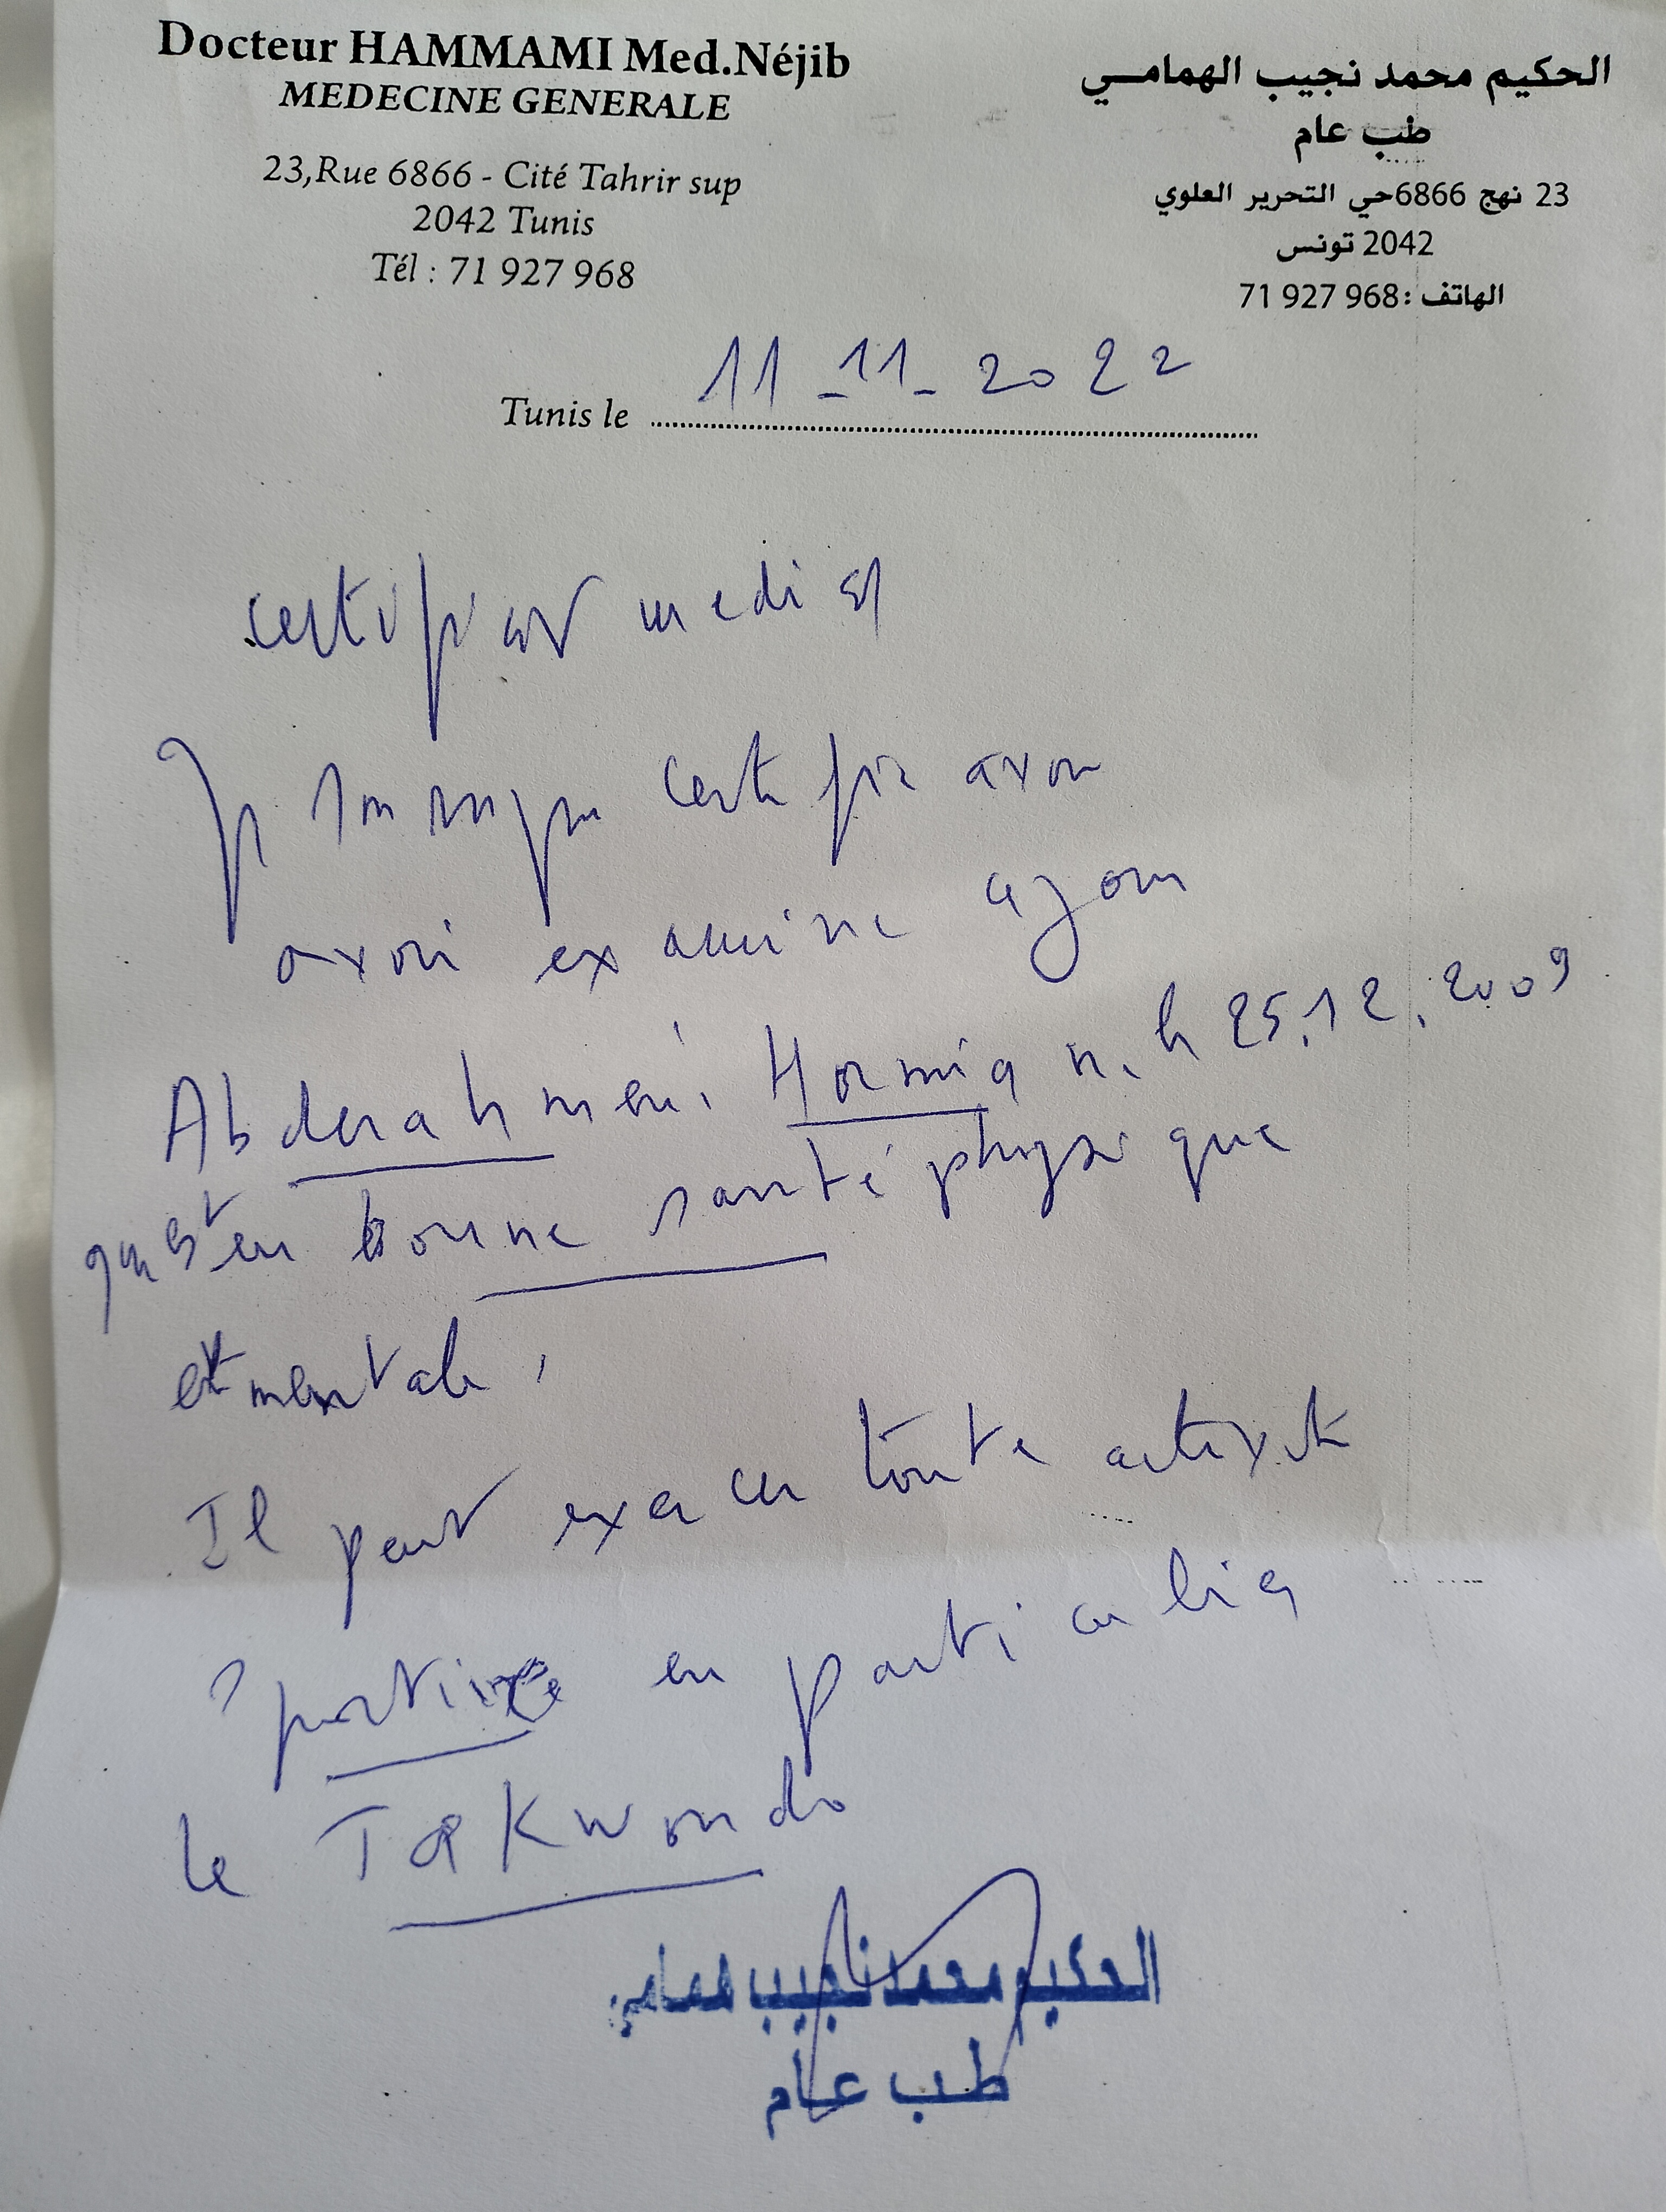 Docteur HAMMAMI Med.Néjib
MEDECINE GENERALE
23,Rue 6866 - Cité Tahrir sup
2042 Tunis
Tél : 71 927 968
الحكيم محمد نجيب الهمامي
طب عام
23 نهج 6866حي التحرير العلوي
2042 تونس
الهاتف :71 927 968
Tunis le 11-11-2022
certificat medical
Je soussigné certifie avoir
avoir examine ajour
Abderahmen. Hormia né le 25.12.2009
qui est en bonne santé physique
et mentale,
Il peut exercer toute activité
sportive en particulier
le Taekwondo
الحكيم محمد نجيب همامي
طب عام